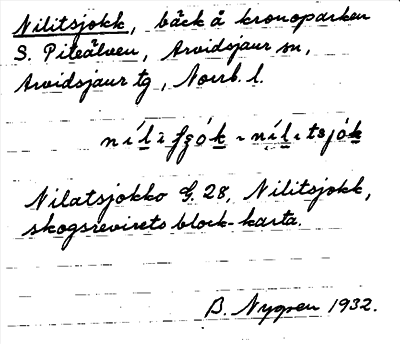 Nilitsjokk, bäck å kronoparken
S. Piteälven, Arvidsjaur sn,
Arvidsjaur tg, Norrb. l.
Nilatsjokko G. 28, Nilitsjokk,
skogsrevirets block-karta.
B. Nygren 1932.